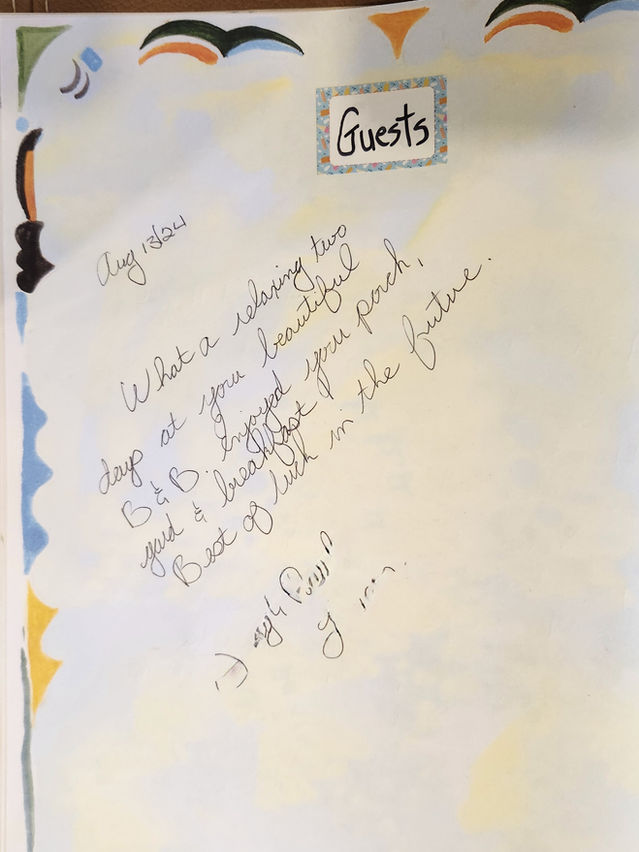 Guests
Aug 13/24
What a relaxing two
days at your beautiful
B & B. Enjoyed your porch,
yard & breakfast!
Best of luck in the future.